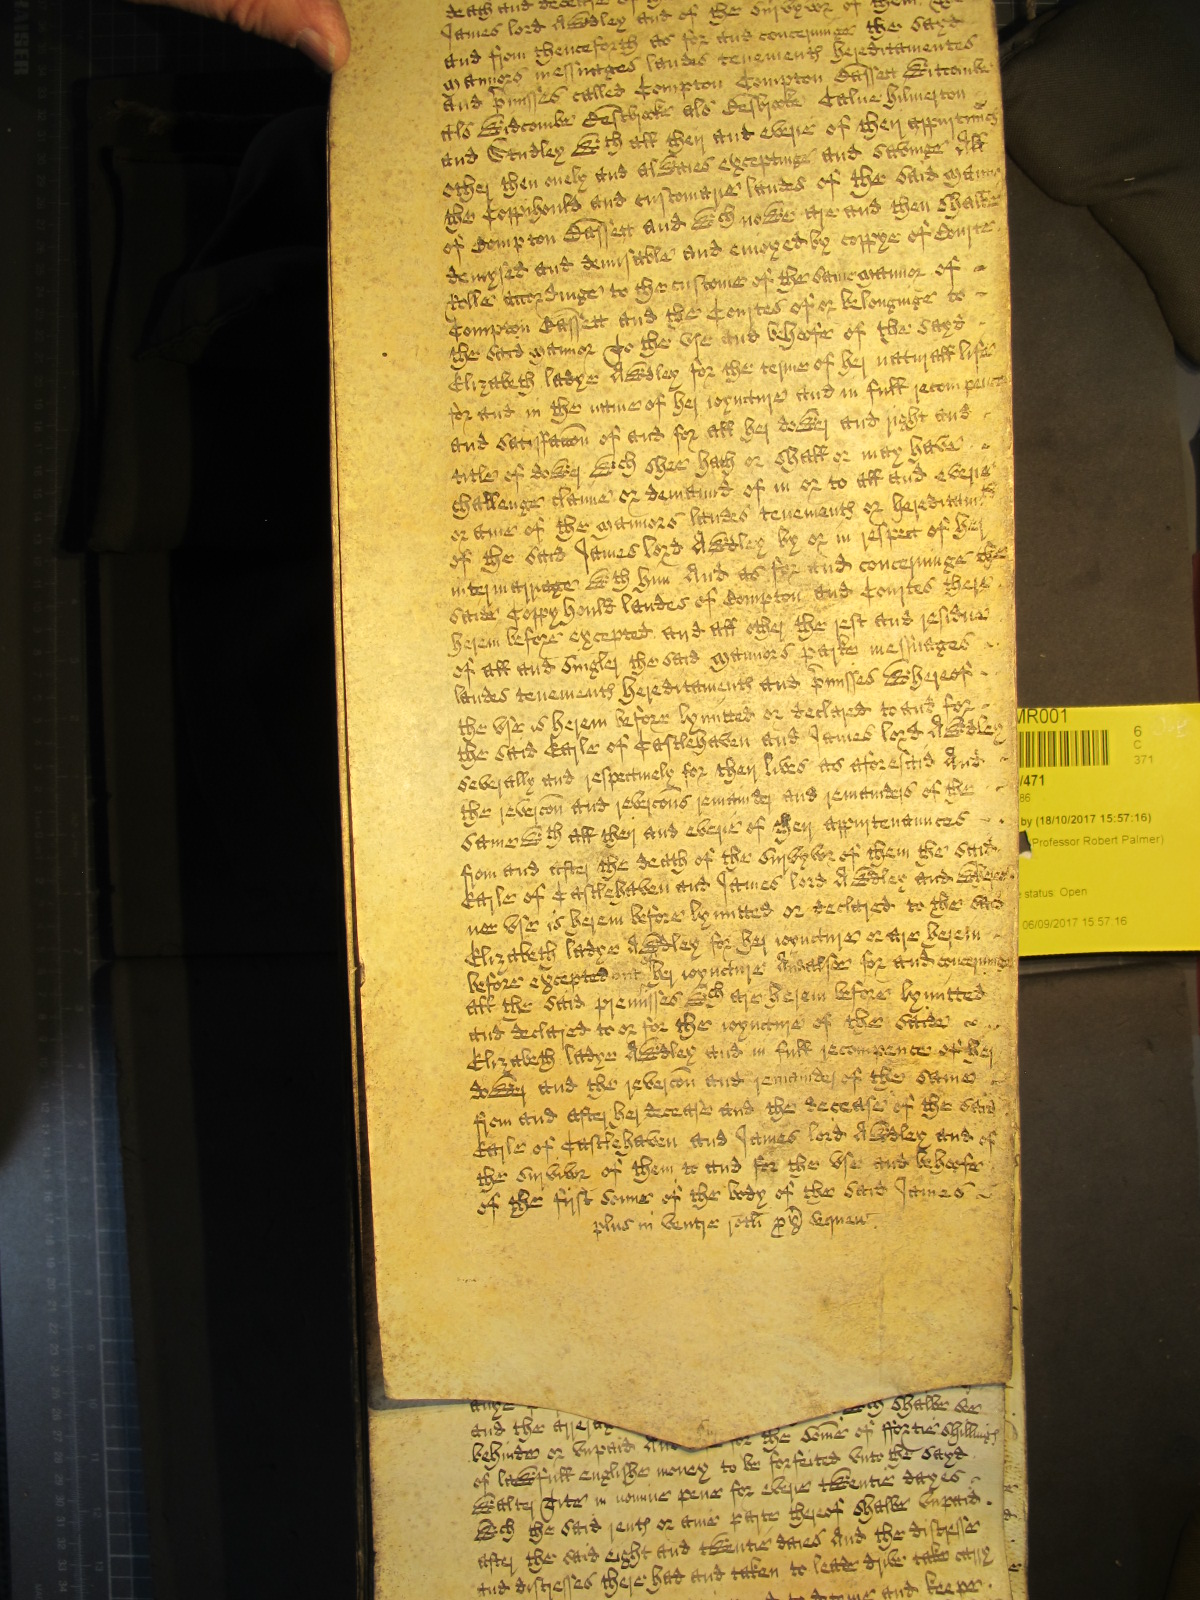 death and decease of
James lord Awdley and of the survyvor of them. The
and from thenceforth as for and concerninge the sayd
mannors messuages landes tenementh hereditamentes
and p̄misses called Compton Compton Bassett Witcombe
als Widcombe Besbrooke als Besbrooke Calne hilmerton
and Studley Wth all their and everie of their appurtennc̄s
other then onely and alwaies exceptinge and savinge All
the Coppihould and customarie landes of the said mannor
of Compton Bassett and Wch nowe are and then shalbe
demysed and demisable and enioyed by coppye of Courte
Rolle accordinge to the custome of the same mannor of
Compton Bassett and the Courtes of or belonginge to
the said mannor To the vse and behoofe of the sayd
Elizabeth ladye Awdley for the terme of her naturall life
for and in the name of her ioyncture and in full recompence
and satisfacōn of and for all her dower and right and
title of dower Wch shee hath or shall or may have
challenge clame or demaund of in or to all and everie
or anie of the mannors landes tenementh or hereditamtes
of the said James lord Awdley by or in respect of her
intermarriage Wth him And as for and concerninge the
saide Coppyhould landes of Compton and Courtes there
herein before excepted and all other the rest and residue
of all and singler the said mannors parke messuages
landes tenementh hereditamenth and p̄misses Whereof
the vse is herein before lymitted or declared to and for
the said Earle of Castlehaven and James lord Awdley
severally and respectively for their lives as aforesaid And
the revercōn and revercōns remainder and remainders of the
same Wth all their and everie of their appurtenaunces
from and after the death of the survyvor of them the said
Earle of Castlehaven and James lord Awdley and Whereof
noe vse is herein before lymitted or declared to the said
Elizabeth ladye Awdley for her ioyncture or are herein
before excepted out her ioyncture And alsoe for and concerninge
all the said premisses Wch are herein before lymitted
and declared to or for the ioyncture of the saide
Elizabeth ladye Awdley and in full recompence of her
dower and the revercōn and remainder of the same
from and after her decease and the decease of the said
Earle of Castlehaven and James lord Awdley and of
the survivor of them to and for the vse and behoofe
of the first sonne of the body of the said James
plus in ventre rotli
anye
shalbe
and the arrerag
behinde or vnpaid And for the some of ffortie shillings
of lawfull englishe money to be forfeited vnto the sayd
Walter Tite in nomine pene for everie twentie dayes
Wch the said rent or anie parte thereof shalbe vnpaid
after the said eight and twentie daies And the distresse
and distresses there had and taken to leade drive take carry
and keepe
MR001
6
C
371
/471
86
by (18/10/2017 15:57:16)
Professor Robert Palmer)
status: Open
06/09/2017 15:57:16